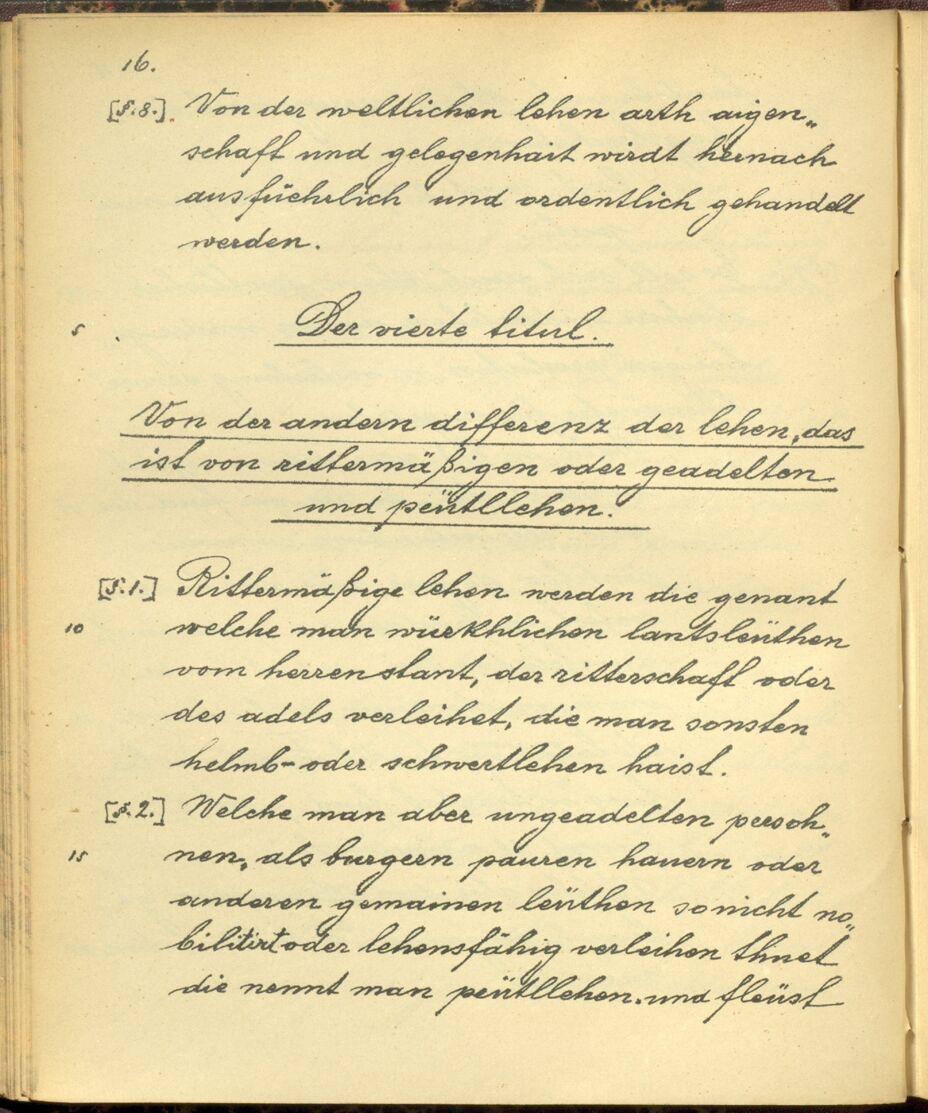 16.
[§.8.]. Von der weltlichen lehen arth aigen„
schaft und gelegenhait wirdt hernach
ausfüehrlich und ordentlich gehandelt
werden.
5 Der vierte titul.
Von der andern differenz der lehen, das
ist von rittermäßigen oder geadelten
und peütllehen.
[§.1.] Rittermäßige lehen werden die genant
10 welche man würkhlichen lantsleüthen
vom herrenstant, der ritterschaft oder
des adels verleihet, die man sonsten
helmb- oder schwertlehen haist.
[§.2.] Welche man aber ungeadelten persoh„
15 nen, als burgern pauren hauern oder
anderen gemainen leüthen so nicht no„
bilitirt oder lehensfähig verleihen thuet
die nennt man peütllehen. und fleüst